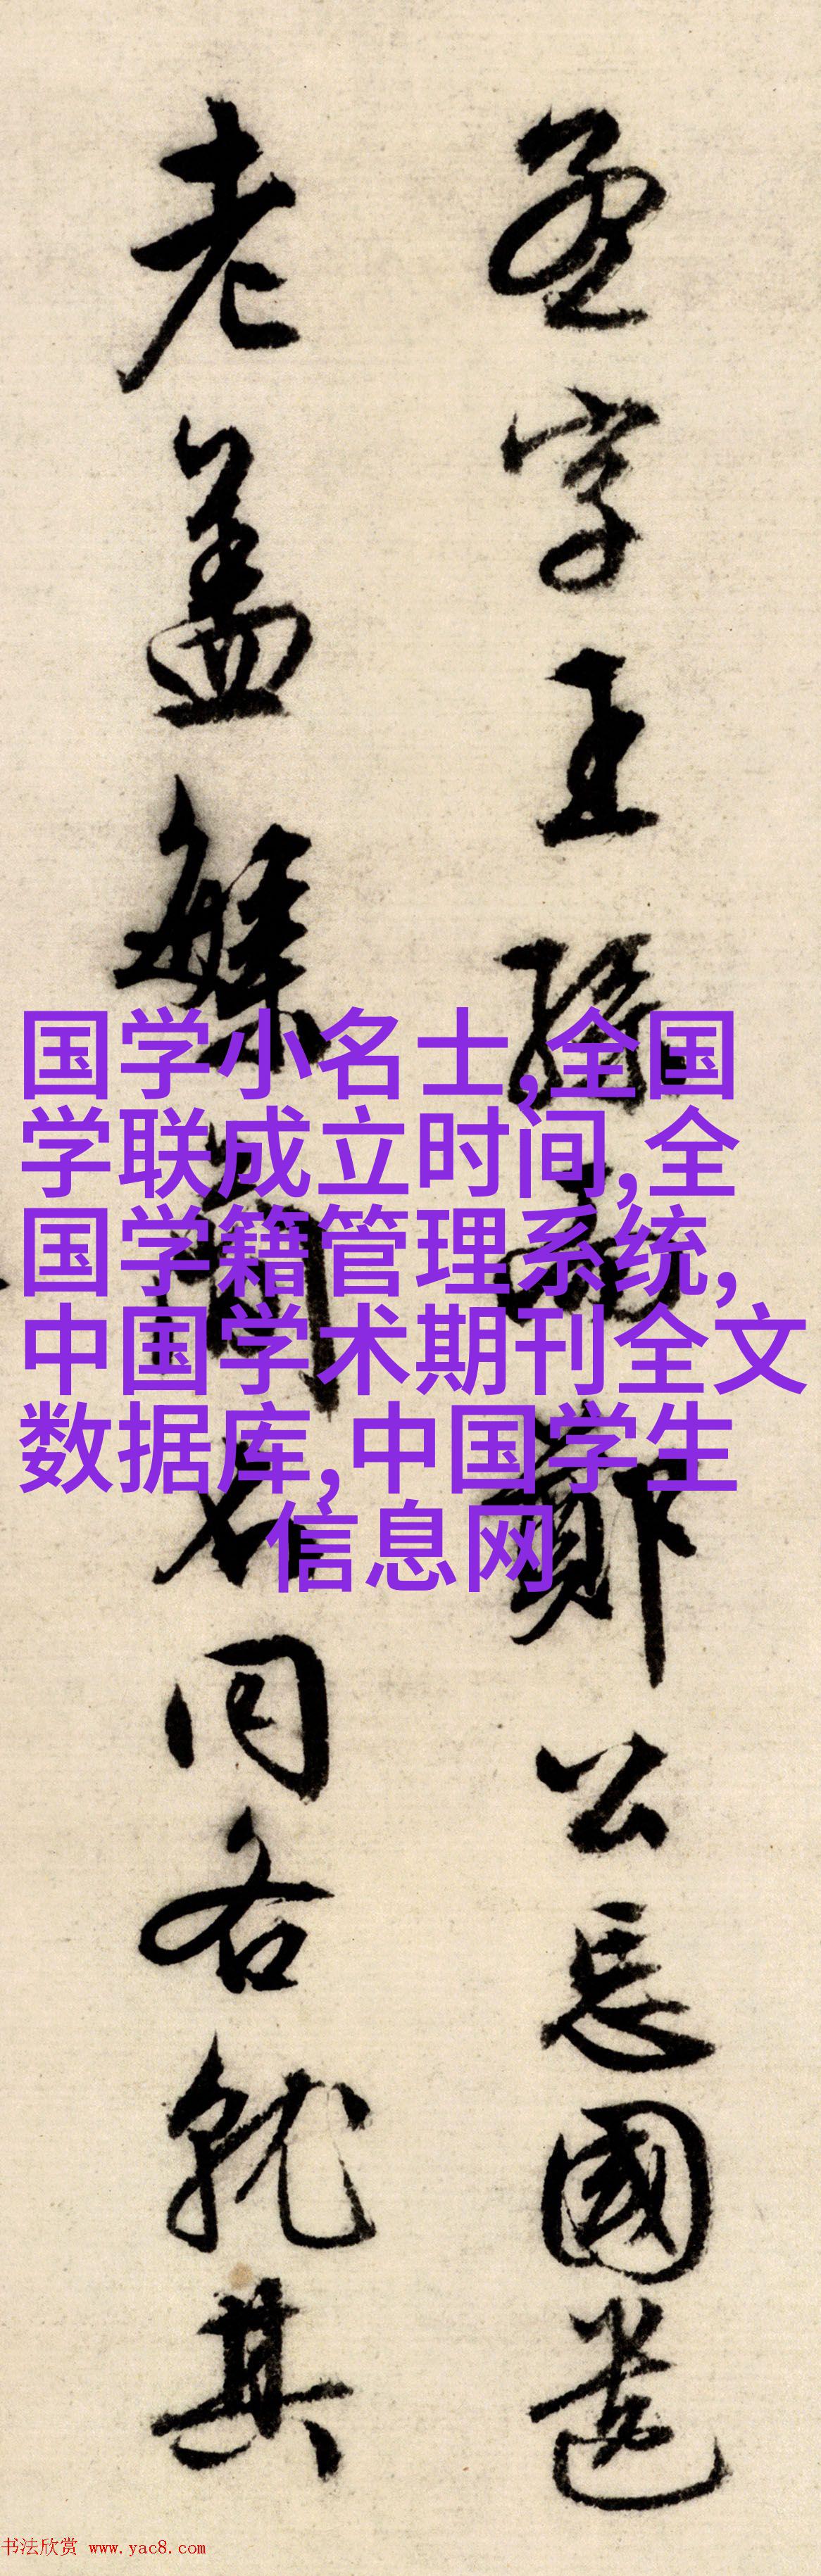 字王鄭公國遺
老蓋繁簡名同各就其
国学小名士,全国
学联成立时间,全
国学籍管理系统,
中国学术期刊全文
数据库,中国学生
信息网
书法欣赏 www.yac8.com